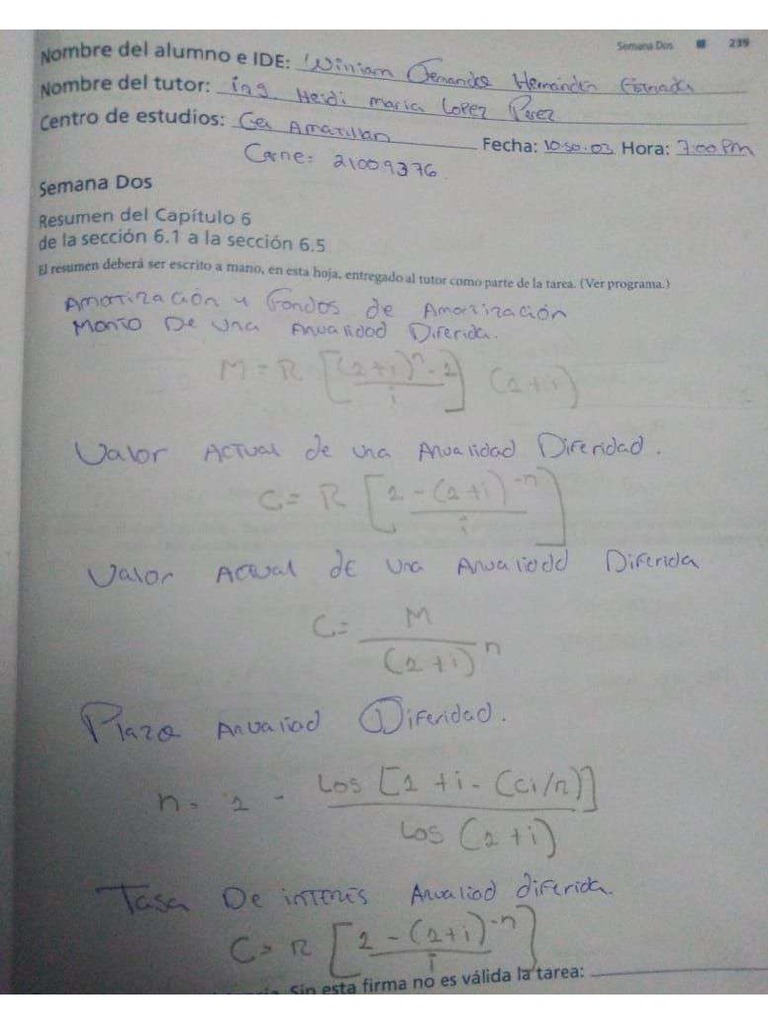 Semana Dos 239
Nombre del alumno e IDE: Winiam Hernández
Nombre del tutor: ing Heidi maria Lopez Perez
Centro de estudios: Cei Amatitlan Fecha: Hora: 7:00 Pm
Carne: 21009376
Semana Dos
Resumen del Capítulo 6
de la sección 6.1 a la sección 6.5
El resumen deberá ser escrito a mano, en esta hoja, entregado al tutor como parte de la tarea. (Ver programa.)
Amortización y Fondos de Amortización
Monto De una Anualidad Diferida.
M = R [(1+i)^n - 1 / i] (1+i)
Valor Actual de una Anualidad Diferidad.
C = R [1 - (1+i)^-n / i]
Valor Actual de una Anualidad Diferida
C = M / (1+i)^n
Plazo Anualiad Diferidad.
n = 1 - Log [1 + i - (Ci/R)] / Log (1+i)
Tasa De interés Anualiad diferida.
C = R [1 - (1+i)^-n / i]
Sin esta firma no es válida la tarea: